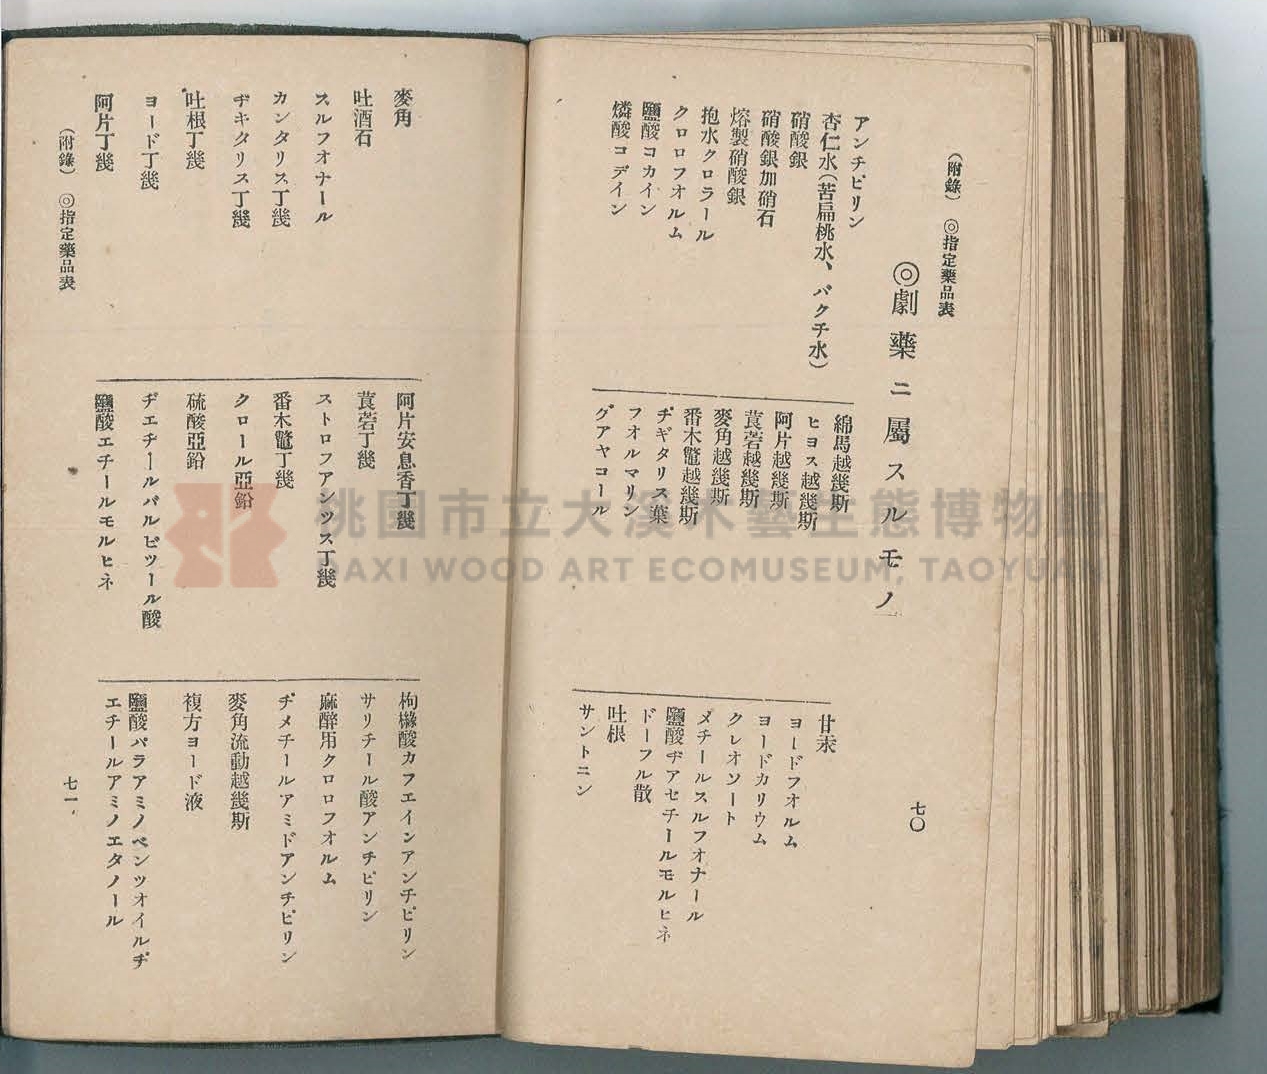 (附錄) ◎指定藥品表
◎劇藥ニ屬スルモノ
アンチピリン
杏仁水(苦扁桃水、バクチ水)
硝酸銀
硝酸銀加硝石
熔製硝酸銀
抱水クロラール
クロロフオルム
鹽酸コカイン
燐酸コデイン
綿馬越幾斯
ヒヨス越幾斯
阿片越幾斯
莨菪越幾斯
麥角越幾斯
番木鼈越幾斯
ヂギタリス葉
フオルマリン
グアヤコール
甘汞
ヨードフオルム
ヨードカリウム
クレオソート
メチールスルフオナール
鹽酸ヂアセチールモルヒネ
ドーフル散
吐根
サントニン
七〇
麥角
吐酒石
スルフオナール
カンタリス丁幾
ヂキタリス丁幾
吐根丁幾
ヨード丁幾
阿片丁幾
阿片安息香丁幾
莨菪丁幾
ストロフアンツス丁幾
番木鼈丁幾
クロール亞鉛
硫酸亞鉛
ヂエチールバルビツール酸
鹽酸エチールモルヒネ
枸櫞酸カフエインアンチピリン
サリチール酸アンチピリン
麻醉用クロロフオルム
ヂメチールアミドアンチピリン
麥角流動越幾斯
複方ヨード液
鹽酸パラアミノベンツオイルヂ
エチールアミノエタノール
(附錄) ◎指定藥品表
七一
桃園市立大溪木藝生態博物館
DAXI WOOD ART ECOMUSEUM, TAOYUAN